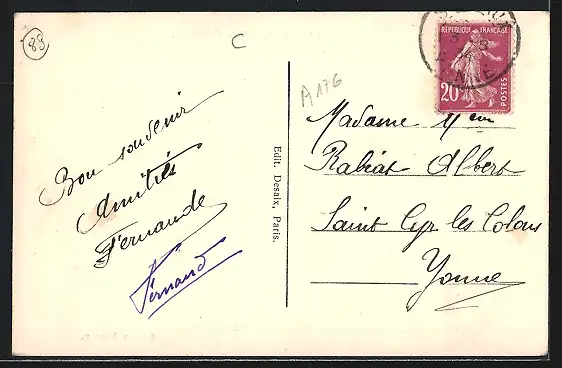 89
C
A176
RÉPUBLIQUE FRANÇAISE
20
POSTES
Bon souvenir
Amitiés
Fernande
Fernand
Edit. Desaix, Paris.
Madame
Rabiat Albert
Saint Cyr les Colons
Yonne